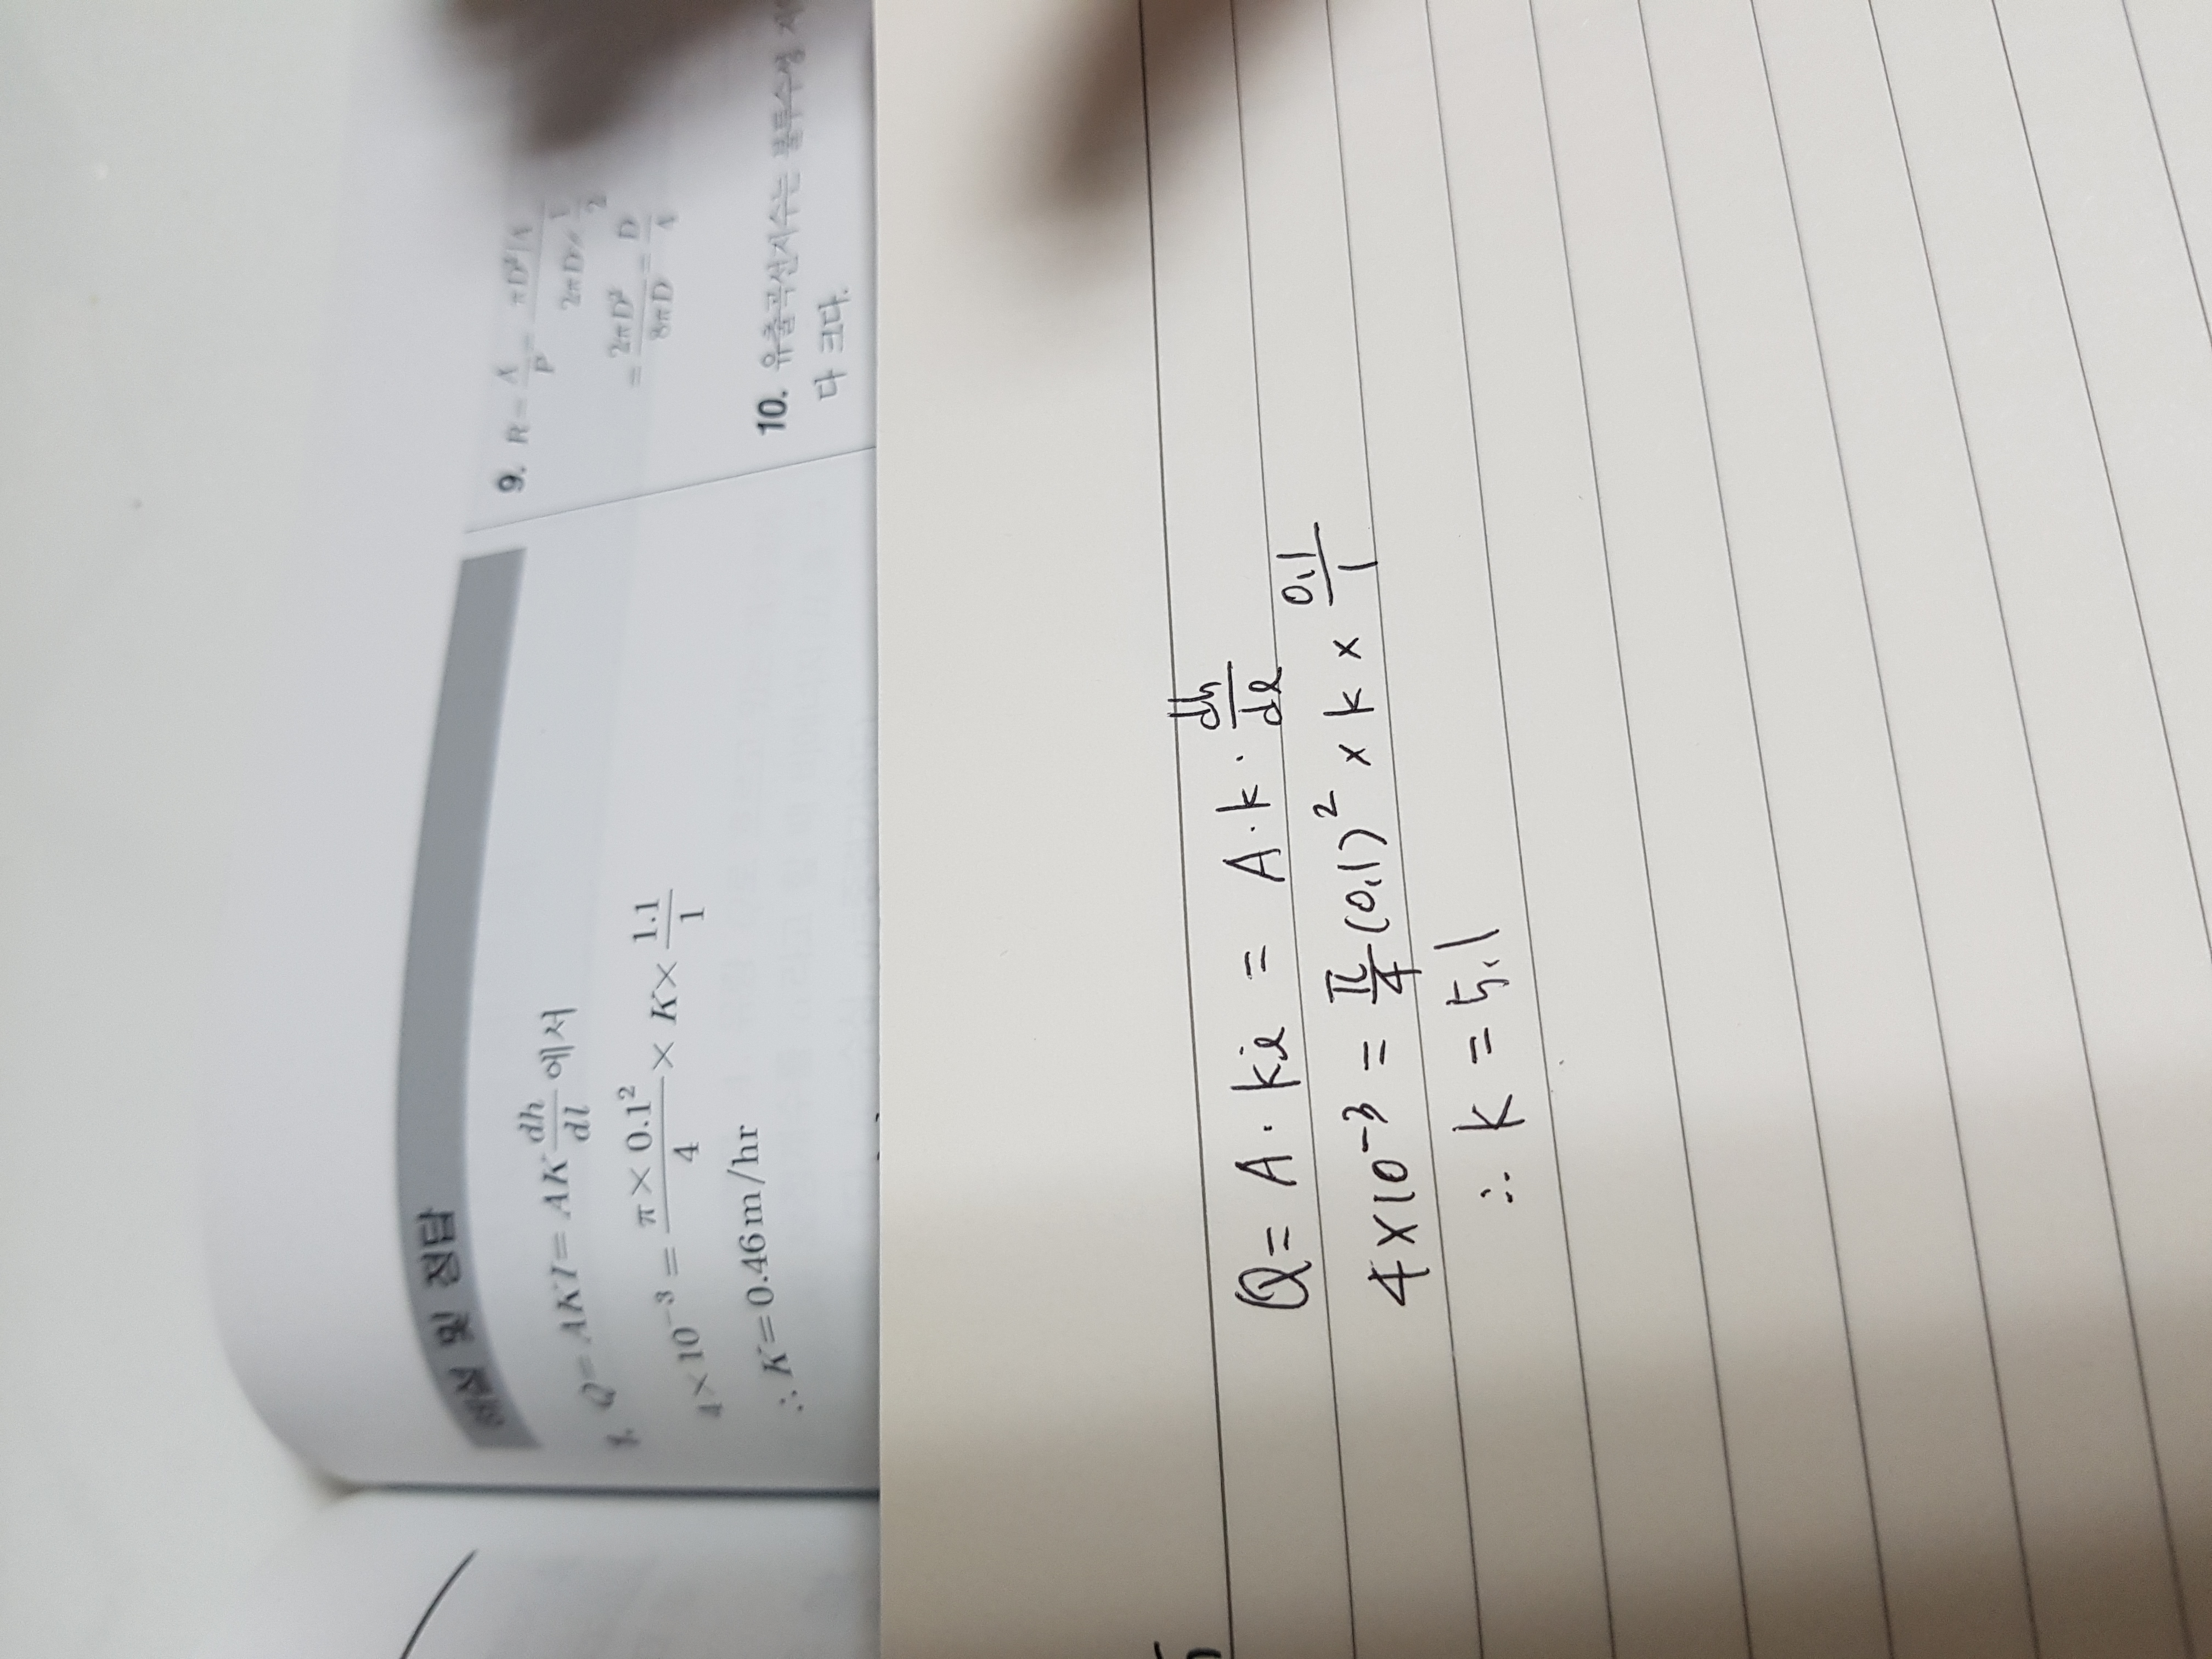 해설 및 정답
1. Q=AKI=AK dh/dl 에서
4×10⁻³ = π×0.1²/4 × K× 1.1/1
∴ K=0.46m/hr
9. R= A/P = πD²/4 / 2πD× 1/2
= 2πD²/8πD = D/4
10. 유출곡선지수는 불투수성
다 크다.
Q = A · ki = A · k · dh/dl
4×10⁻³ = π/4 (0.1)² × k × 0.1/1
∴ k = 5.1